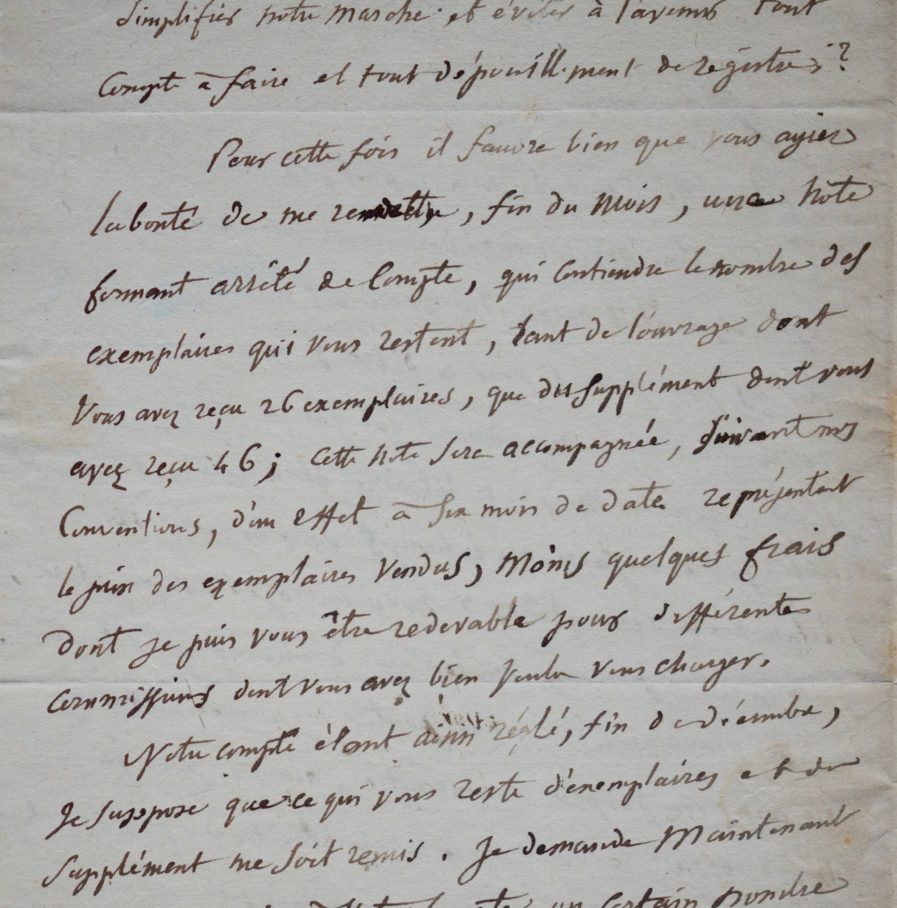 Simplifier notre marche et éviter à l'avenir tout
Compte à faire et tout dépouillement de régistres ?
Pour cette fois il faudra bien que vous ayiez
la bonté de me remettre, fin du mois, une Note
formant arrêté de Compte, qui contiendra le nombre des
exemplaires qui vous restent, tant de l'ouvrage dont
Vous avez reçu 26 exemplaires, que du supplément dont vous
avez reçu 46 ; Cette Note sera accompagnée, suivant nos
Conventions, d'un effet à six mois de date représentant
le prix des exemplaires vendus, moins quelques frais
dont je puis vous être redevable pour différentes
commissions dont vous avez bien voulu vous charger.
Notre compte étant ainsi réglé, fin de décembre,
Je suppose que ce qui vous reste d'exemplaires et du
supplément me soit remis. Je demande Maintenant
un certain nombre